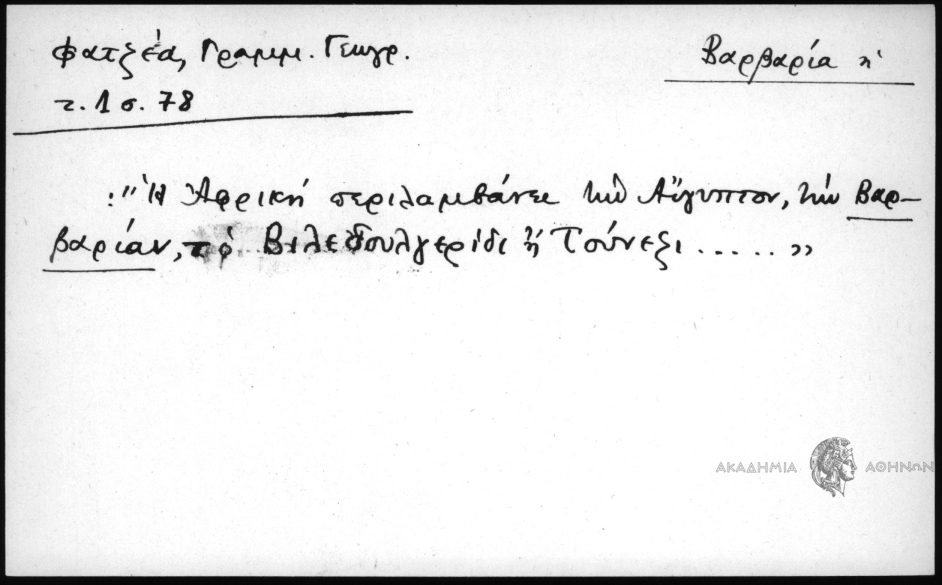 Φατζέα, Γραμμ. Γεωγρ.
Βαρβαρία ἡ
τ. 1 σ. 78
: "Ἡ Ἀφρική περιλαμβάνει τήν Αἴγυπτον, τήν Βαρ-
βαρίαν, τό Βιλεδουλγερίδι ἤ Τούνεζι ..... »
ΑΚΑΔΗΜΙΑ ΑΘΗΝΩΝ